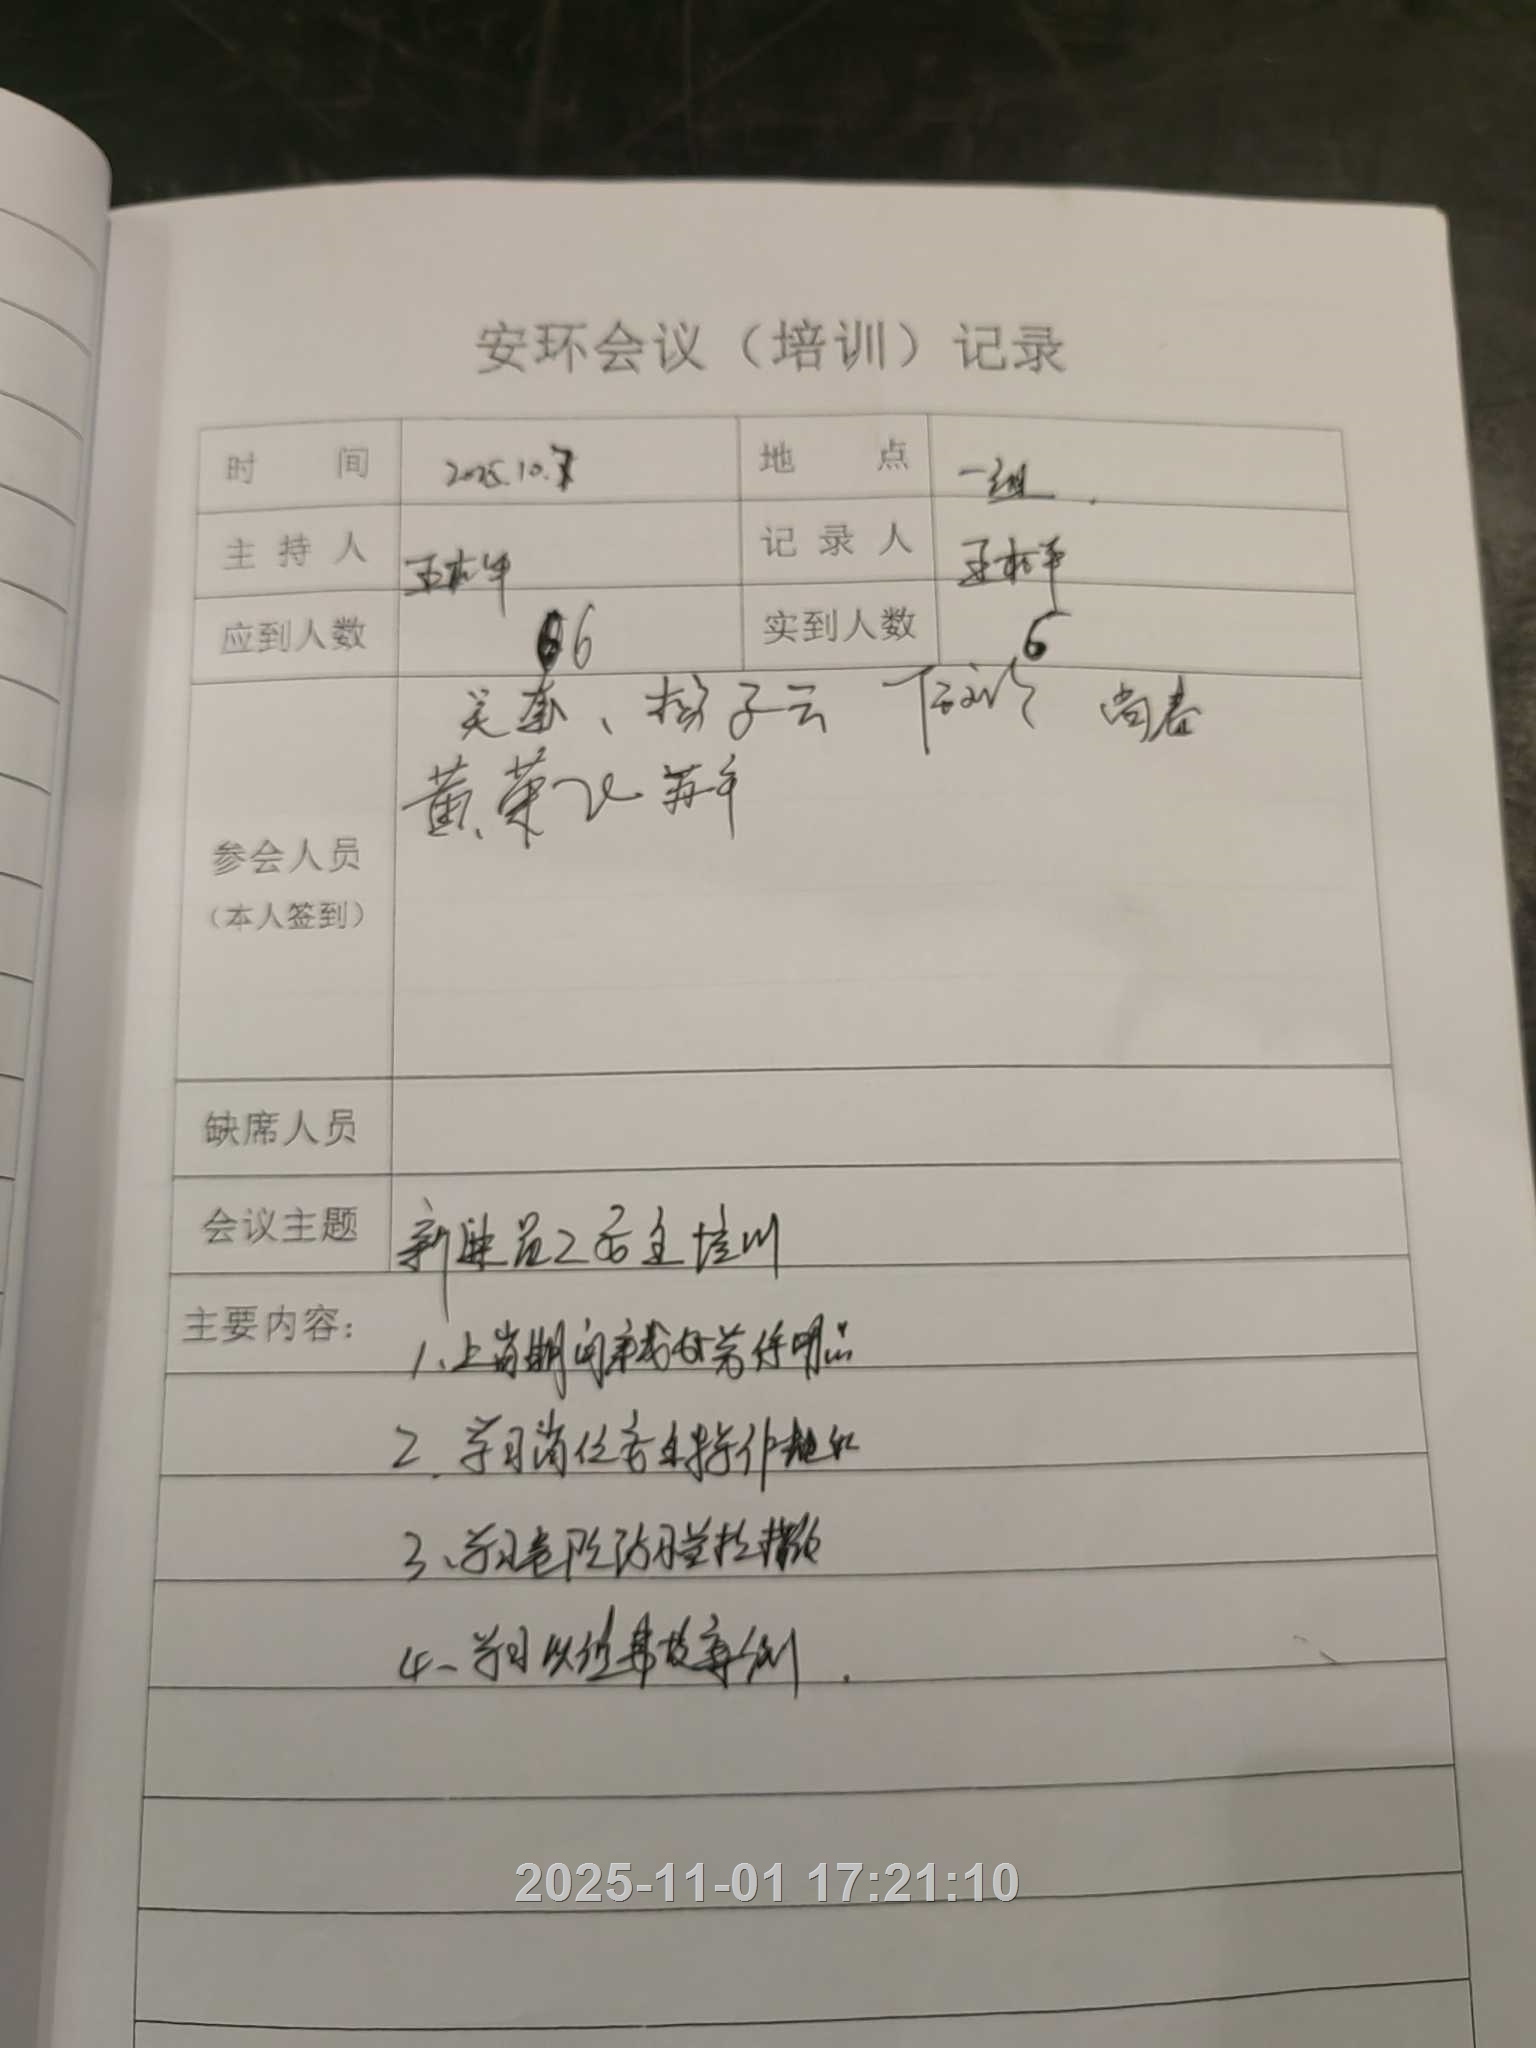 安环会议（培训）记录
时间 2025.10.7 地点 一组
主持人 王 记录人 王
应到人数 6 实到人数 6
黄荣飞
参会人员
（本人签到）
缺席人员
会议主题 新进员工安全培训
主要内容：
1、上岗期间穿戴好劳保用品
2、学习岗位安全操作规程
3、学习危险防控措施
4、学习以往事故案例.
2025-11-01 17:21:10